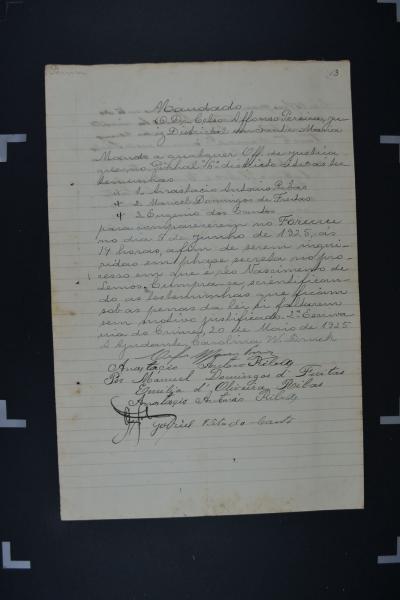 13
Mandado
O Dr. Celso Affonso Pereira, ju
iz Districtal de Santa Maria
Mando a qualquer Off. de justiça
5º districto cite as tes
temunhas
1. Anastacio Antonio Ribas
2. Manoel Domingos de Freitas
3. Eugenio dos Santos
para comparecerem no Forum
no dia 5 de Junho de 1925, ás
14 horas, afim de serem inqui
ridas em phase secreta no pro
cesso em que é réo Nascimento de
Lemos. Cumpra-se, scientifican
do as testemunhas que ficam
sob as penas da lei si faltarem
sem motivo justificado. 2º Escriva
nia do Crime, 20 de Maio de 1925.
O Ajudante, Carolina
Anastacio Antonio
Por Manuel Domingos d' Freitas
d' Oliveira Ribas
Anastacio Antonio
Gabriel